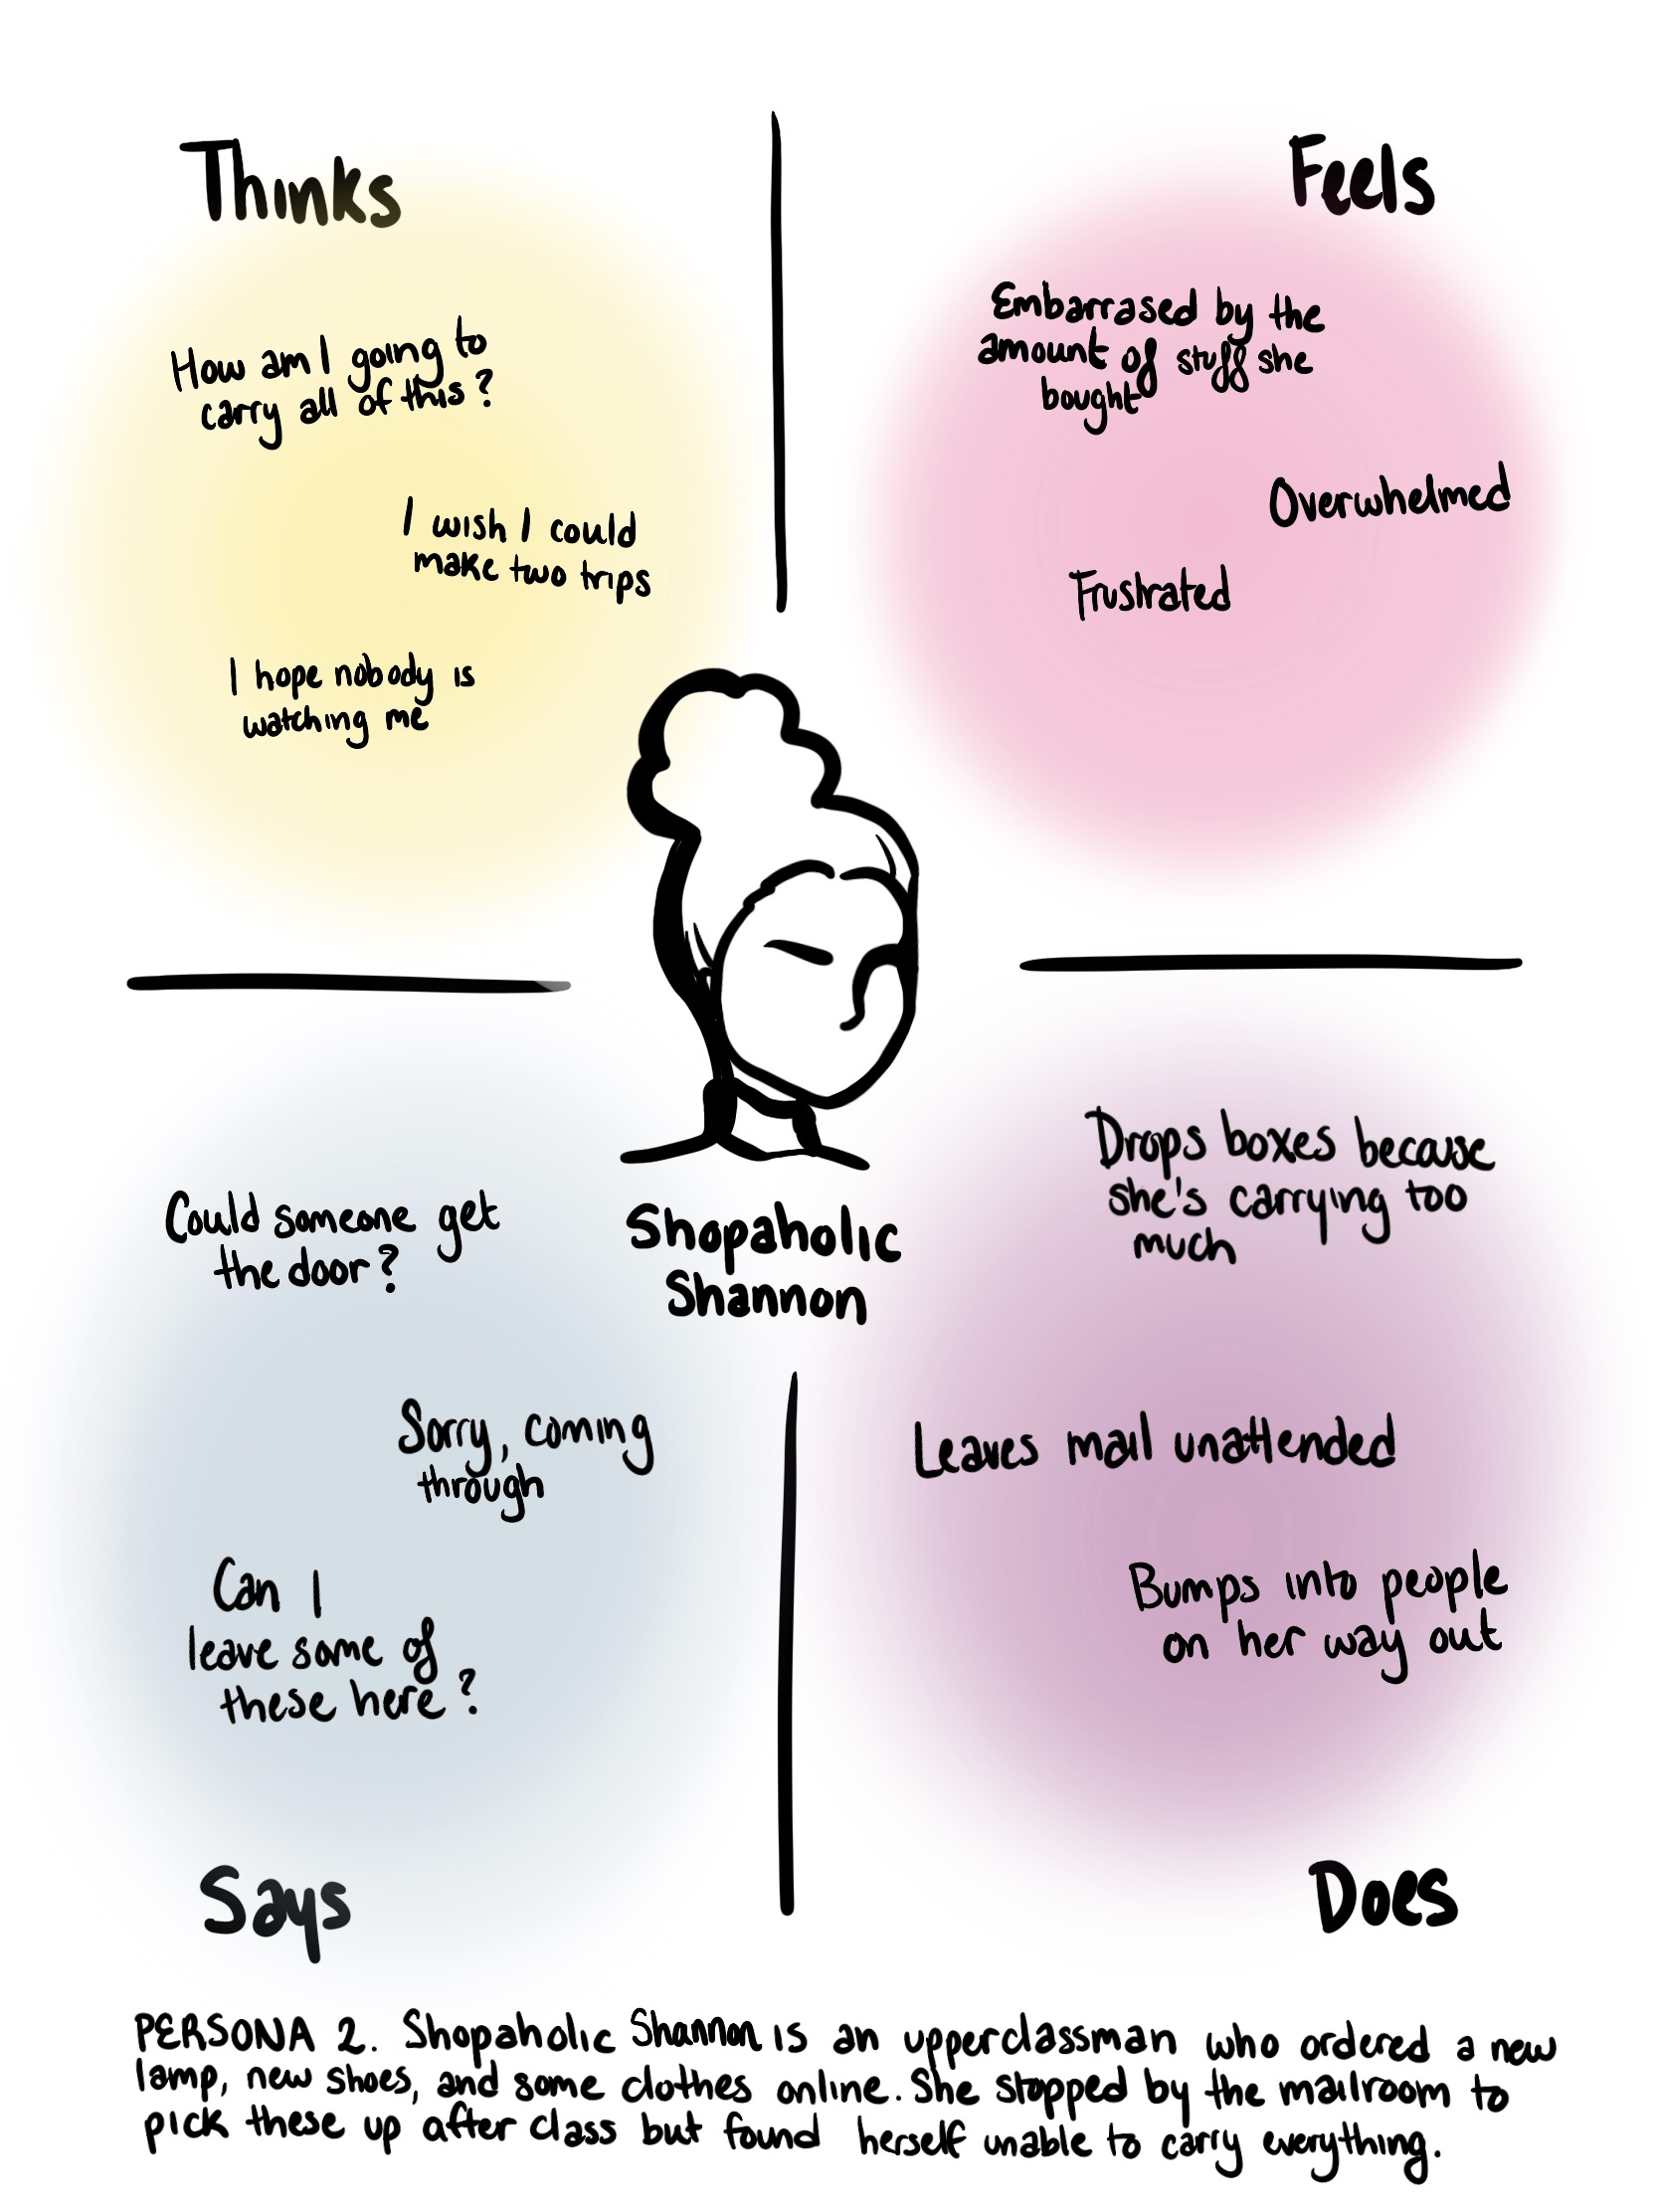 Thinks
How am I going to
carry all of this?
I wish I could
make two trips
I hope nobody is
watching me
Feels
Embarrased by the
amount of stuff she
bought
Overwhelmed
Frustrated
Shopaholic
Shannon
Could someone get
the door?
Sorry, coming
through
Can I
leave some of
these here?
Says
Drops boxes because
she's carrying too
much
Leaves mail unattended
Bumps into people
on her way out
Does
PERSONA 2. Shopaholic Shannon is an upperclassman who ordered a new
lamp, new shoes, and some clothes online. She stopped by the mailroom to
pick these up after class but found herself unable to carry everything.